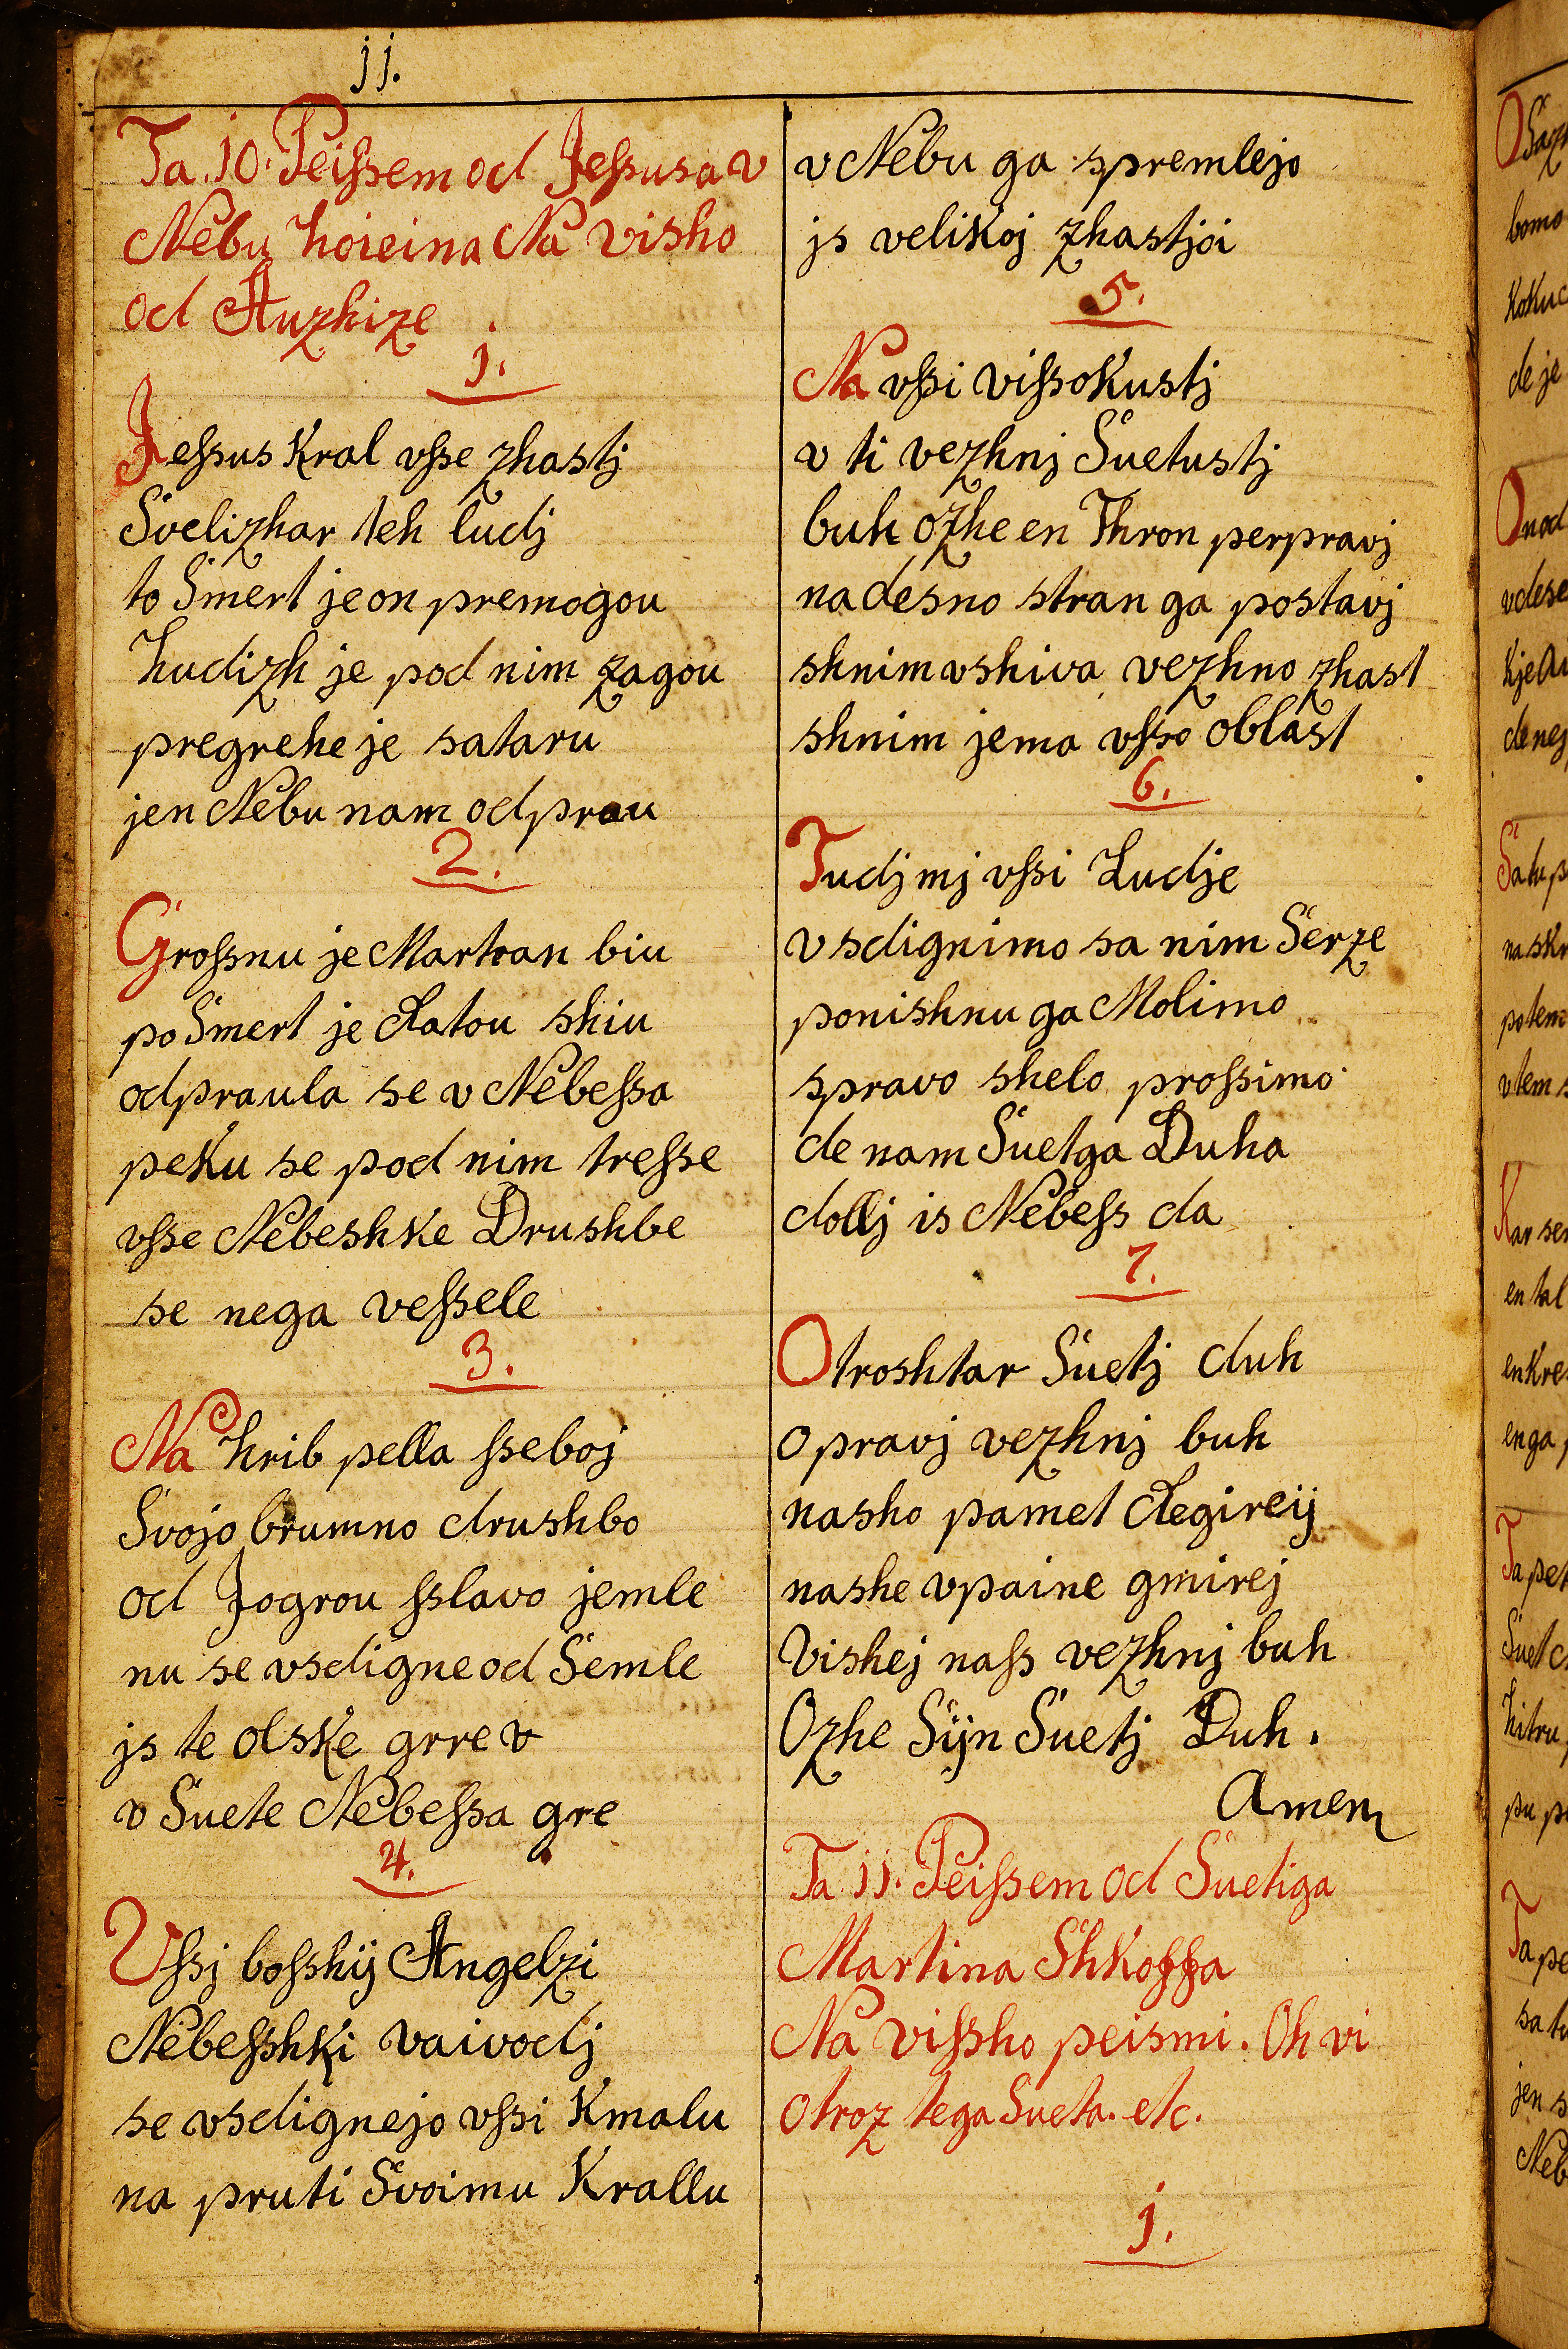 jj.
Ta. 10. Peißem od Jeßusa v
Nebu hoieina Na visho
od Auzhize
j.
Jeßus Kral vße zhastj
Svelizhar teh ludj
to Smert je on premogou
hudizh je pod nim zagou
pregrehe je sataru
jen Nebu nam odprau
2.
Großnu je Martran biu
po Smert je ratou shiu
odpraula se v Nebeßa
peku se pod nim treße
vße Nebeshke Drushbe
se nega veßele
3.
Na hrib pella ßeboj
Svojo brumno drushbo
od Jogrou ßlavo jemle
nu se vsdigne od Semle
js te olske grre v
v Suete Nebeßa gre
4.
Vßj boßhij Angelzi
Nebeßhki vaivodj
se vsdignejo vßi Kmalu
na pruti Svoimu Krallu
v Nebu ga spremlejo
js velikoj zhastjoi
5.
Na vßi vißokustj
v ti vezhnj Suetustj
buh ozhe en Thron perpravj
na desno stran ga postavj
shnim vshiva vezhno zhast
shnim jema vßo oblast
6.
Tudj mj vßi Ludje
vsdignimo sa nim Serze
ponishnu ga Molimo
spravo shelo proßimo
de nam Suetga Duha
dollj is Nebeß da
7.
Otroshtar Suetj duh
opravj vezhnj buh
nasho pamet regireij
nashe vpaine gmirej
Vishej naß vezhnj buh
Ozhe Sijn Suetj Duh.
Amen
Ta 11. Peißem od Suetiga
Martina Shkoffa
Na vißho peismi. Oh vi
otroz tega Sueta. etc.
j.